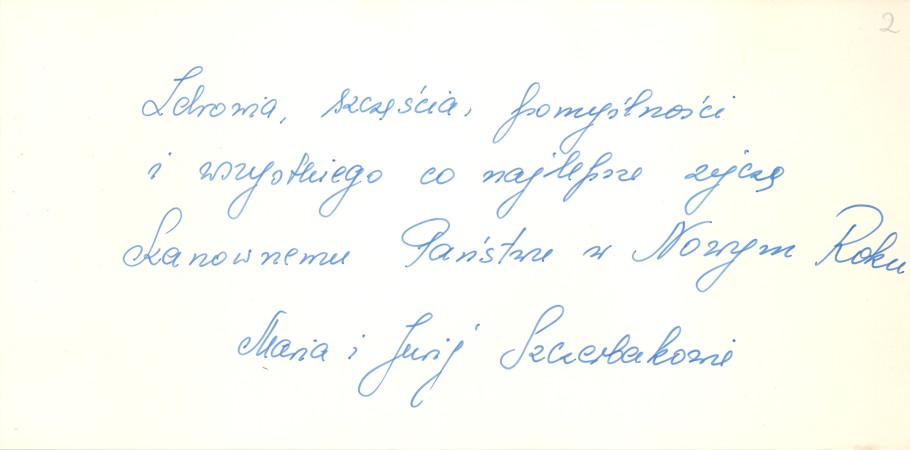 2
Zdrowia, szczęścia, pomyślności
i wszystkiego co najlepsze życzę
Szanownemu Państwu w Nowym Roku
Maria i Jurij Szczerbakowie